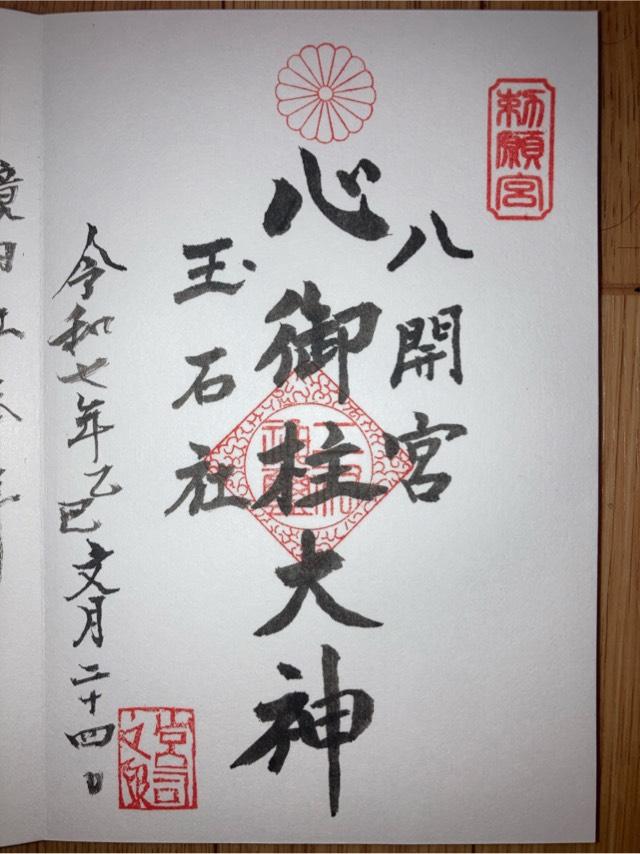 勅願宮
八開宮
心御柱大神
玉石社
令和七年乙巳文月二十四日
宮司之印